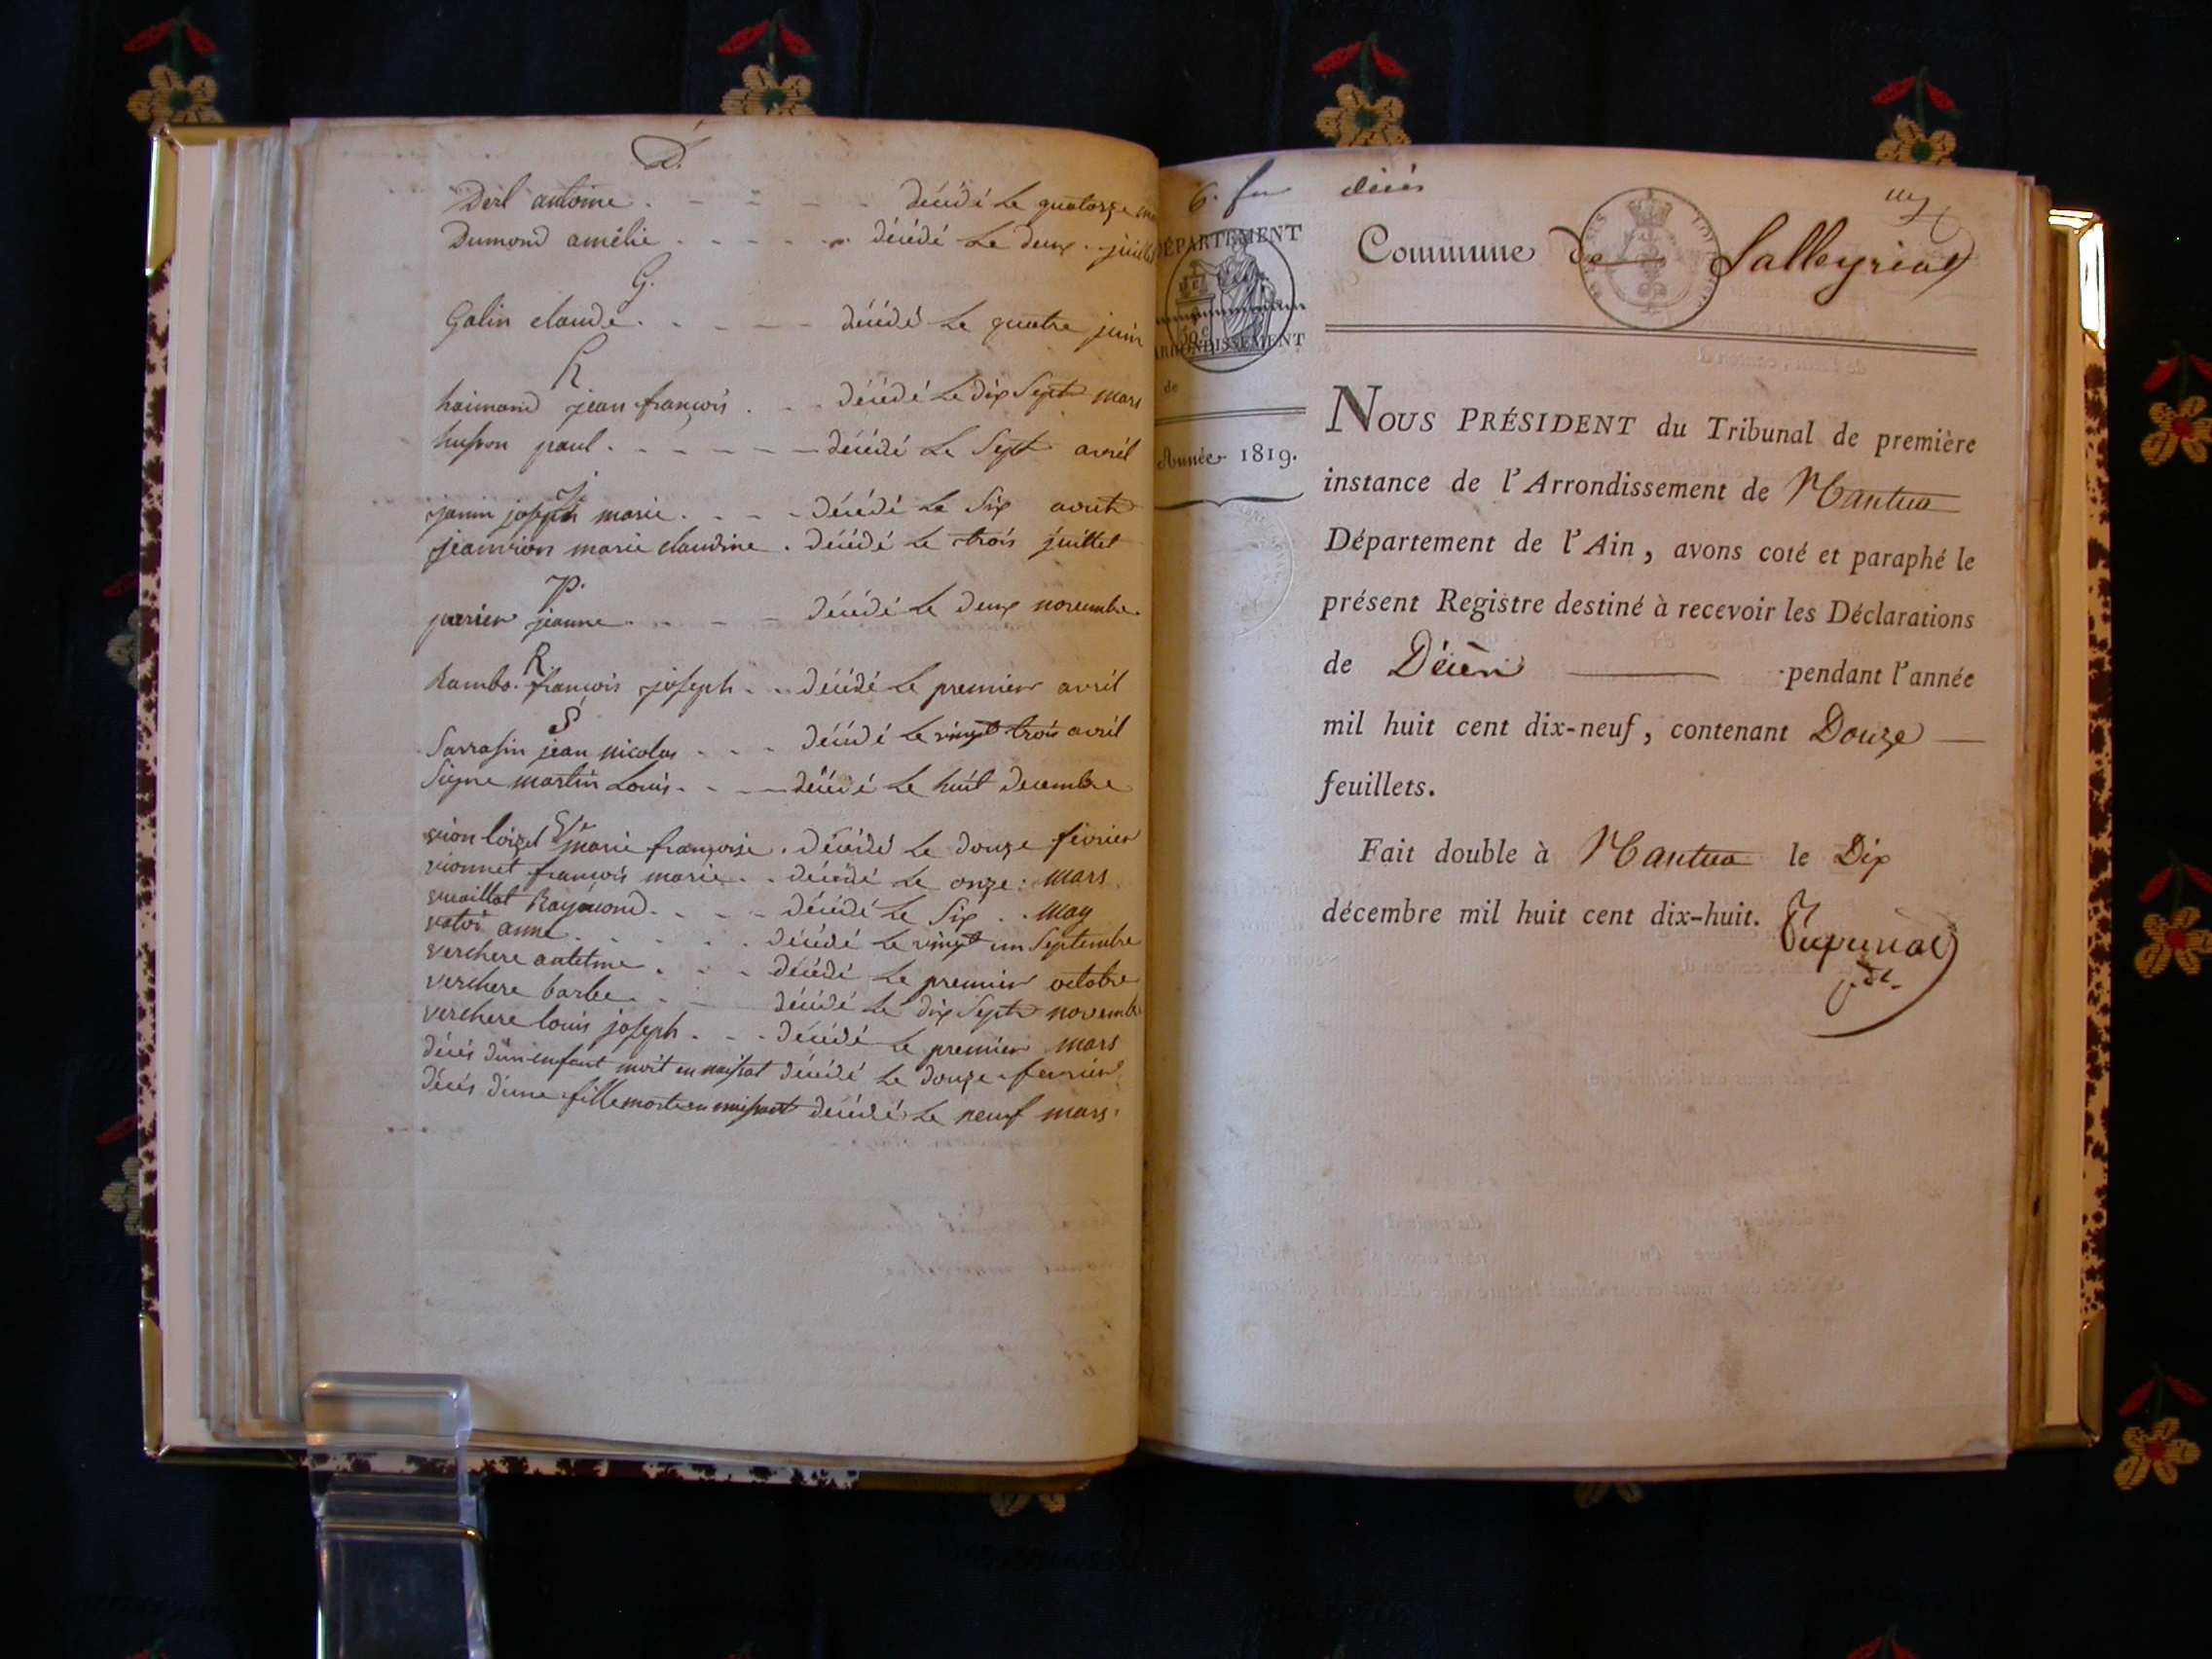 D.
Derl antoine décédé Le quatorze
Dumond amélie décédé Le deux juillet
G.
Galin claude décédé Le quatre juin
h
haimand jean françois décédé Le dix Sept mars
husson paul décédé Le Sept avril
j
janin joseph marie décédé Le Six aout
jeanvion marie claudine décédé Le trois juillet
p.
perrier jeanne décédé Le deux novembre
R.
Rambo. françois joseph décédé Le premier avril
S
Sarrasin jean nicolas décédé Le vingt trois avril
Signe martin Louis décédé Le huit decembre
V
vion loizel marie françoise décédé Le douze février
vionnet françois marie décédé Le onze mars
vuaillat Raymond décédé Le Six May
anne décédé Le vingt un Septembre
verchere antelme décédé Le premier octobre
verchere barbe décédé Le dix Sept novemb
verchere louis joseph décédé Le premier mars
décés d'un enfant mort en naissat décédé Le douze fevrier
décés d'une fille morte en naissant décédé Le neuf mars
6. décès
DÉPARTEMENT
50 c
ARRONDISSEMENT
de
Année 1819.
Commune de Salleyriat
NOUS PRÉSIDENT du Tribunal de première
instance de l'Arrondissement de Nantua
Département de l'Ain, avons coté et paraphé le
présent Registre destiné à recevoir les Déclarations
de Décès pendant l'année
mil huit cent dix-neuf, contenant Douze
feuillets.
Fait double à Nantua le Dix
décembre mil huit cent dix-huit.